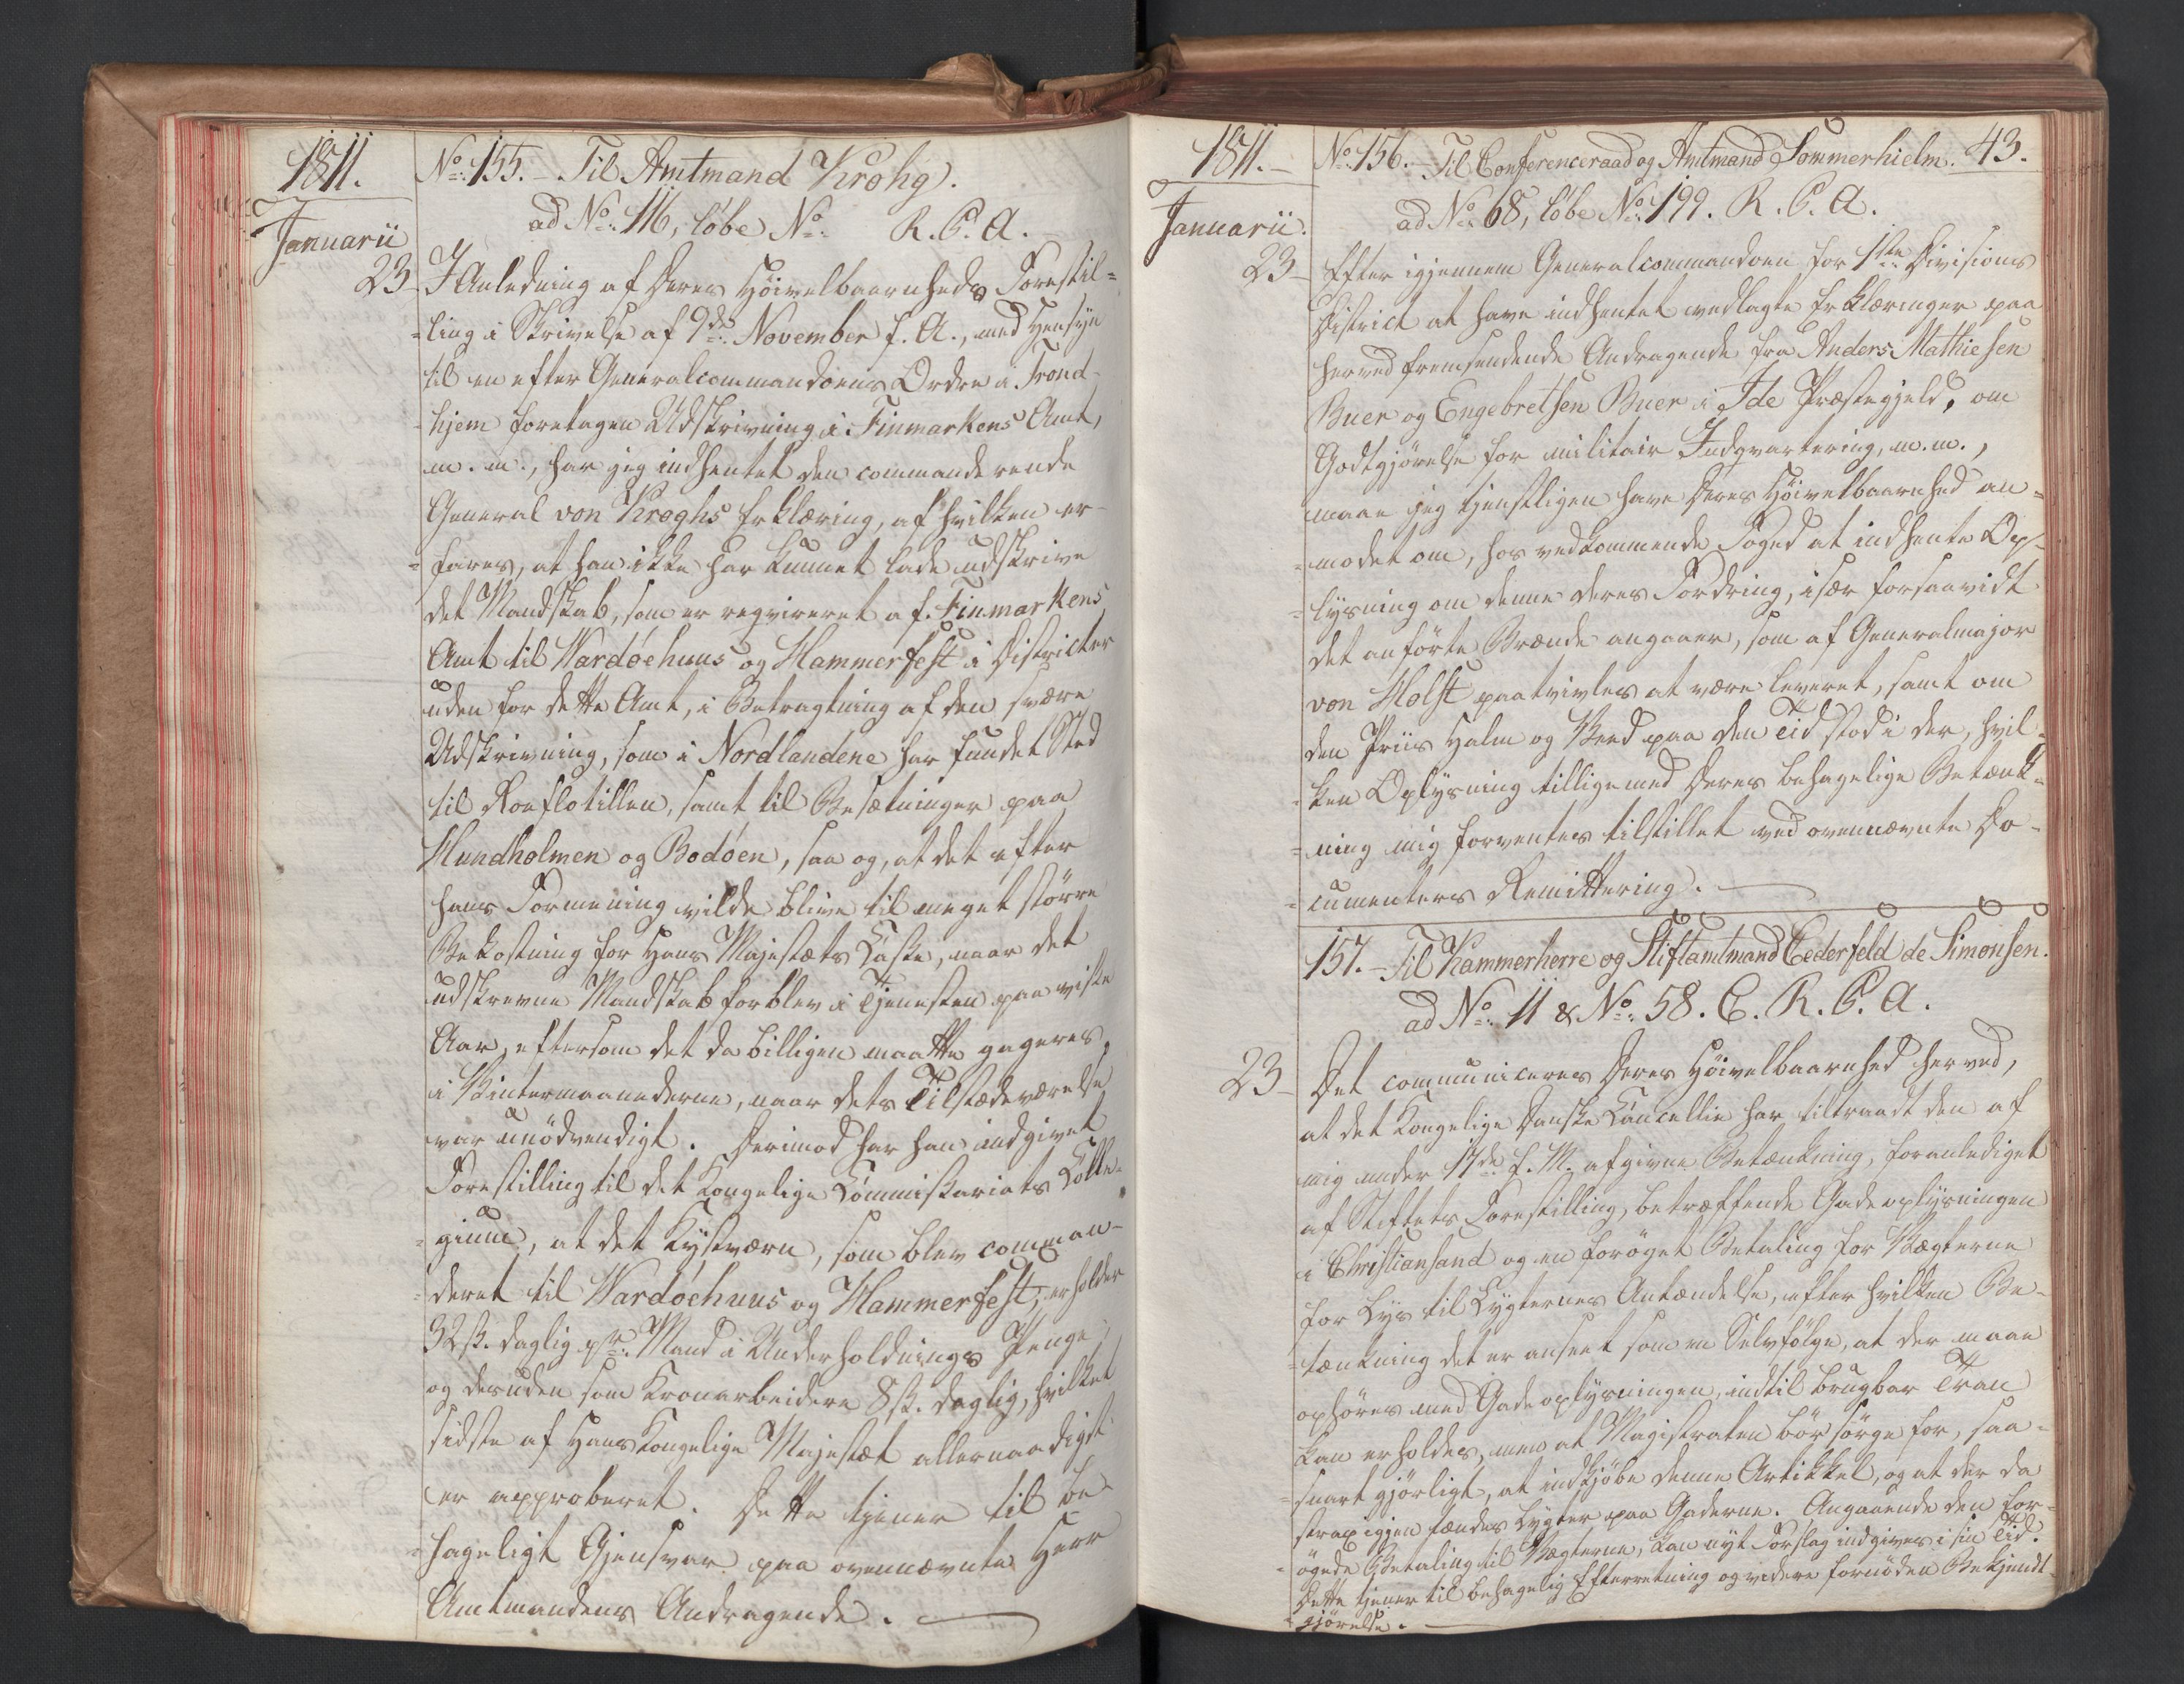 1811.
Januarii
23
No: 155. – Til Amtmand Krohg.
ad No: 116, löbe No: R. C. A.
I Anledning af Deres Höivelbaarnheds Forestil=
=ling i Skrivelse af 9de November f. A., med Hensyn
til en efter Generalcommandoens Ordre i Trond-
hjem foretagen Udskrivning i Finmarkens Amt,
m. m., har jeg indhentet den commanderende
General von Kroghs Erklæring, af hvilken er-
=fares, at han ikke har kunnet lade udskrive
det Mandskab, som er reqvireret af Finmarkens
Amt til Wardöehuus og Hammerfest i Districter
uden for dette Amt, i Betragtning af den svære
Udskrivning, som i Nordlandene har fundet Sted
til Roeflotillen, samt til Besætninger paa
Hundholmen og Bodöen, saa og, at det efter
hans Formening vilde blive til meget större
Bekostning for Hans Majestæts Kasse, naar det
udskrevne Mandskab forblev i Tjenesten paa visse
Aar, eftersom det da billigen maatte gageres
i Vintermaanederne, naar dets Tilstædeværelse
var unödvendigt. Derimod har han indgivet
Forestilling til det Kongelige Commissariats Colle-
=gium, at det Kystværn, som blev comman-
=deret til Wardöehuus og Hammerfest, erholder
32 ß. daglig pr. Mand i Underholdnings Penge
og desuden som Kronarbeidere 8 ß. daglig, hvilket
sidste af Hans Kongelige Majestæt allernaadigst
er approberet. Dette tjener til be-
=hageligt Gjensvar paa ovennævnte Herr
Amtmandens Andragende.
1811.–
Januarii.
23
No: 156. – Til Conferenceraad og Amtmand Sommerhielm. 43.
ad No: 68, löbe No: 199. R. C. A.
Efter igjennem Generalcommandoen for 1ste Divisions
District at have indhentet vedlagte Erklæringer paa
herved fremsendende Andragende fra Anders Mathiesen
Buer og Engebretsen Buer i Ide Præstegjeld, om
Godtgjörelse for militair Indqvartering, m. m.,
maae jeg tjenstligen have Deres Höivelbaarnhed an=
=modet om, hos vedkommende Foged at indhente Op-
=lysning om denne deres Fordring, især forsaavidt
det anförte Brænde angaaer, som af Generalmajor
von Holst paatvivles at være leveret, samt om
den Priis Halm og Veed paa den Tid stod i der, hvil-
=ken Oplysning tilligemed Deres behagelige Betænk-
=ning mig forventes tilstillet ved ovennævnte Do-
=cumenters Remittering.
157. – Til Kammerherre og Stiftamtmand Cederfeld de Simonsen.
ad No: 11 & No: 58. C. R. C. A.
23
Det communiceres Deres Höivelbaarnhed herved,
at det Kongelige Danske Cancellie har tiltraadt den af
mig under 17de f. M. afgivne Betænkning, foranlediget
af Stiftets Forestilling, betræffende Gadeoplysningen
i Christiansand og en foröget Betaling for Vægterne
for Lys til Lygternes Antændelse, efter hvilken Be-
=tænkning det er anseet som en Selvfölge, at der maae
ophöres med Gadeoplysningen, indtil brugbar Tran
kan erholdes, men at Magistraten bör sörge for, saa-
=snart gjörligt, at indkjöbe denne Artikkel, og at der da
strax igjen tændes Lygter paa Gaderne. Angaaende den for-
=ögede Betaling til Vægterne, kan nyt Forslag indgives i sin Tid.
Dette tjener til behagelig Efterretning og videre fornöden Bekjendt-
=gjörelse.